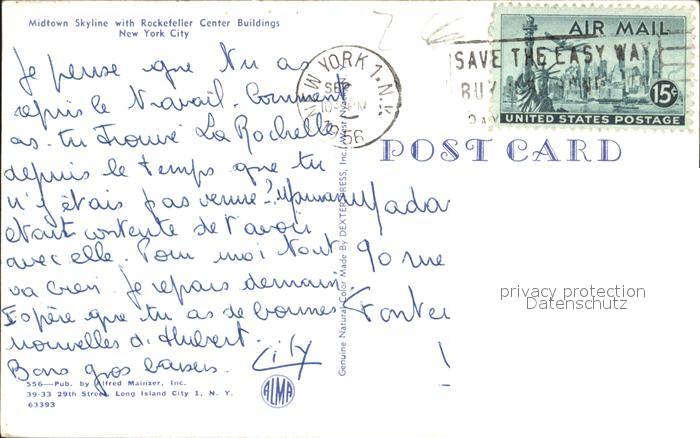 Midtown Skyline with Rockefeller Center Buildings
New York City
Je pense que tu as
repris le travail. Comment
as-tu trouvé La Rochelle
depuis le temps que tu
n'y étais pas venue? Maman
était contente de t'avoir
avec elle. Pour moi tout
va bien. Je repars demain
J'espère que tu as de bonnes
nouvelles d'Hubert.
Bons gros baisers. City
556—Pub. by Alfred Mainzer, Inc.
39-33 29th Street, Long Island City 1, N. Y.
63393
ALMA
Genuine Natural Color Made By DEXTER PRESS, Inc., West Nyack, N.
NEW YORK 1, N.Y.
SEP
1956
SAVE THE EASY WAY
BUY
AIR MAIL
15¢
UNITED STATES POSTAGE
POST CARD
Mada
90 rue
Fonte
privacy protection
Datenschutz